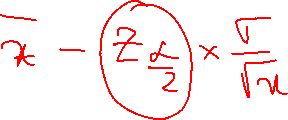 x̄ - Z α/2 × σ/√n